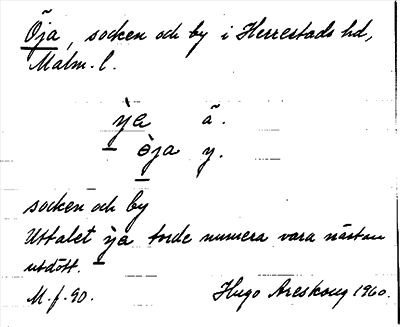 Öja, socken och by i Herrestads hd,
Malm. l.
ỳa ä.
èja y.
socken och by
Uttalet ỳa torde numera vara nästan
utdött.
M. f. 90. Hugo Areskoug 1960.